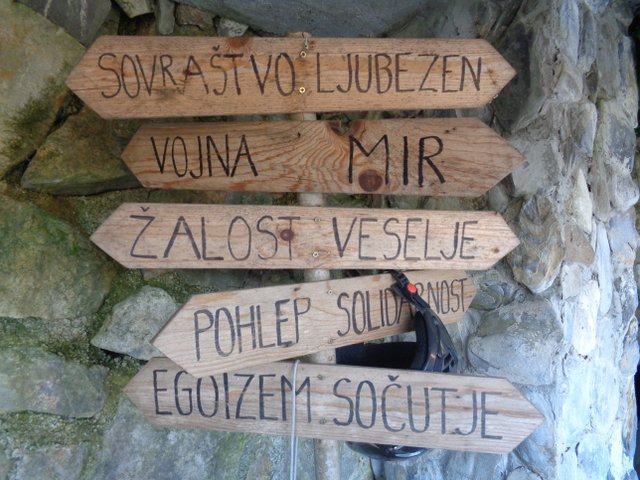 SOVRAŠTVO LJUBEZEN
VOJNA MIR
ŽALOST VESELJE
POHLEP SOLIDARNOST
EGOIZEM SOČUTJE